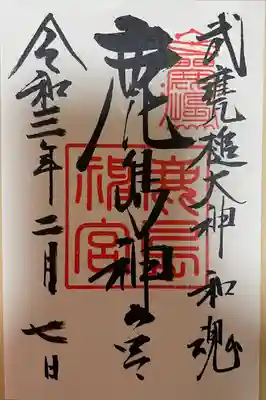 武甕槌大神 和魂
鹿島神宮
令和三年二月七日
鹿島
神宮